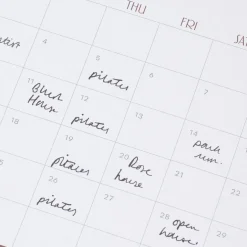 THU FRI
4 5 6 7
pilates
11 12 13 14
House pilates park
run
18 19 20 21
pilates Rose
house
25 26 27 28 29
pilates open
house